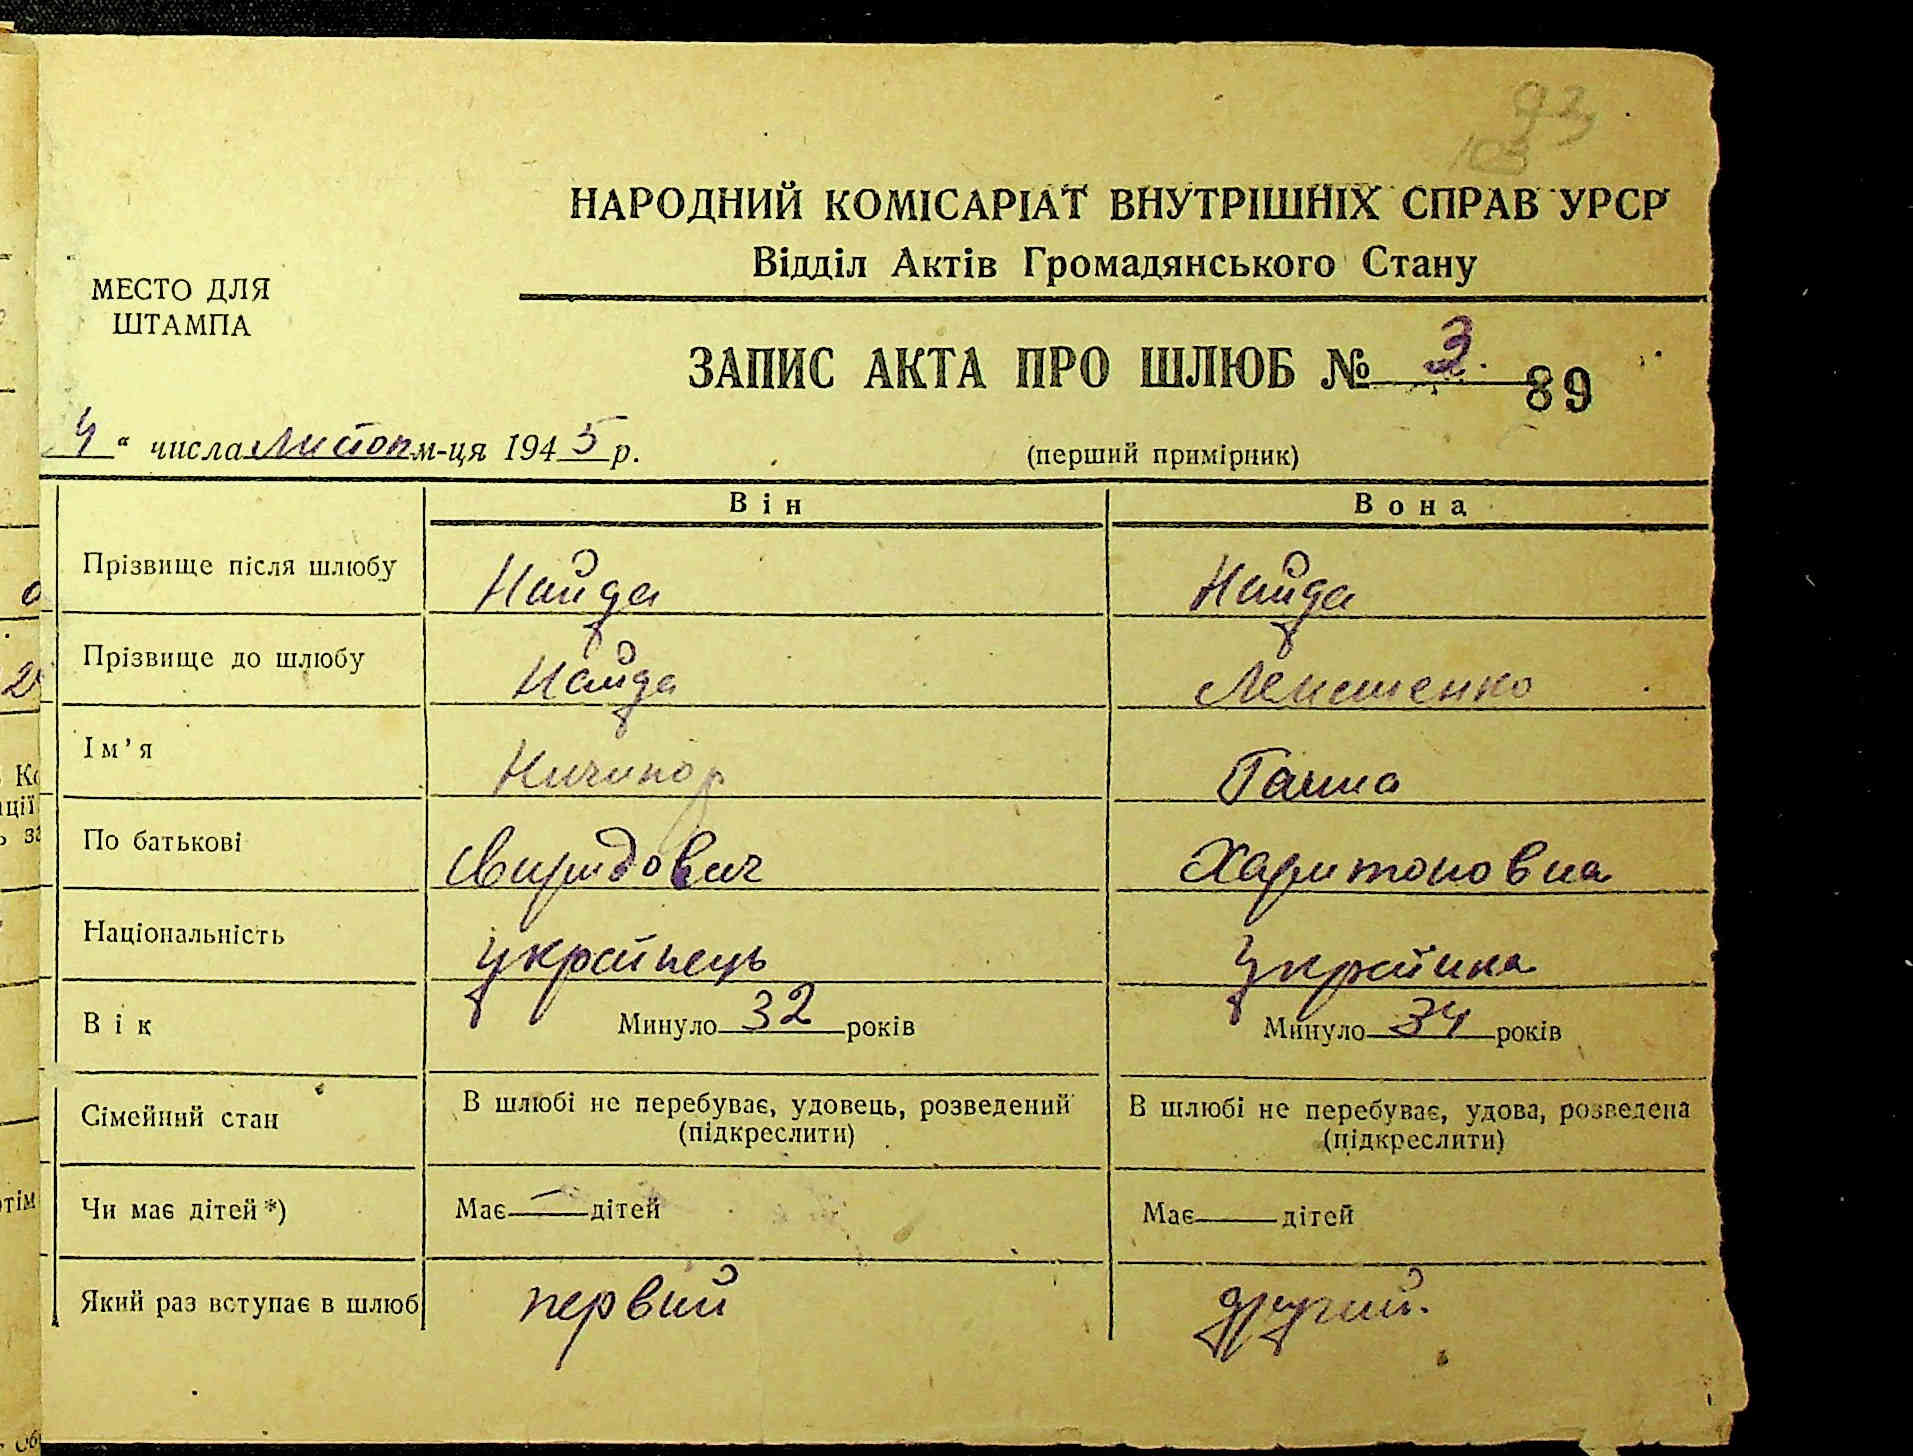 93
103
НАРОДНИЙ КОМІСАРІАТ ВНУТРІШНІХ СПРАВ УРСР
Відділ Актів Громадянського Стану
МЕСТО ДЛЯ
ШТАМПА
ЗАПИС АКТА ПРО ШЛЮБ № 3.
89
4 " числа листоп м-ця 1945 р.
(перший примірник)
Він Вона
Прізвище після шлюбу Найда Найда
Прізвище до шлюбу Найда
Ім'я Ничипор Ганна
По батькові Свиридович Харитоновна
Національність українець українка
Вік Минуло 32 років Минуло 34 років
Сімейний стан В шлюбі не перебуває, удовець, розведений (підкреслити) В шлюбі не перебуває, удова, розведена (підкреслити)
Чи має дітей *) Має — дітей Має дітей
Який раз вступає в шлюб первий другий.